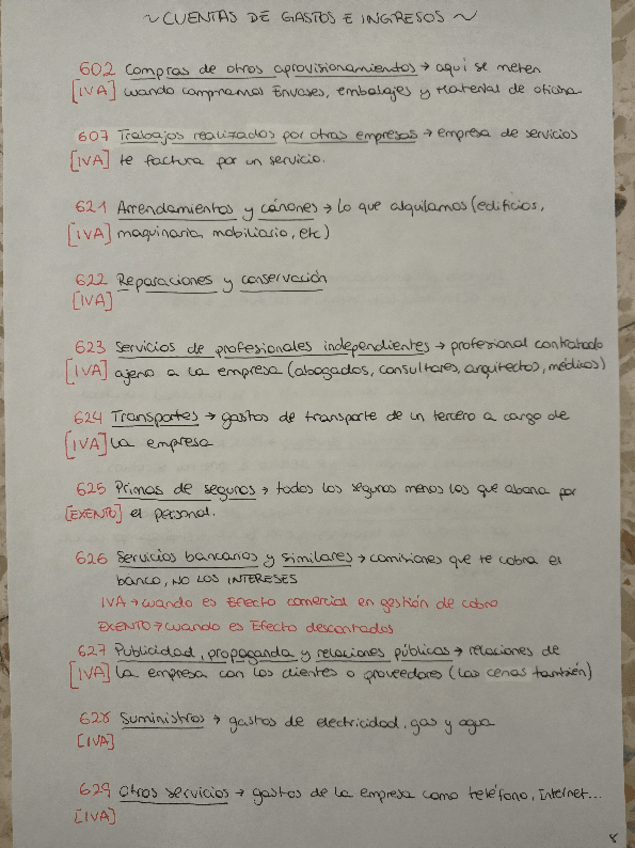 ~ CUENTAS DE GASTOS E INGRESOS ~
602 Compras de otros aprovisionamientos → aquí se meten
[IVA] cuando compramos Envases, embalajes y Material de oficina
607 Trabajos realizados por otras empresas → empresa de servicios
[IVA] te factura por un servicio.
621 Arrendamientos y cánones → lo que alquilamos (edificios,
[IVA] maquinaria, mobiliario, etc)
622 Reparaciones y conservación
[IVA]
623 Servicios de profesionales independientes → profesional contratado
[IVA] ajeno a la empresa (abogados, consultores, arquitectos, médicos)
624 Transportes → gastos de transporte de un tercero a cargo de
[IVA] la empresa
625 Primas de seguros → todos los seguros menos los que abona por
[EXENTO] el personal.
626 Servicios bancarios y similares → comisiones que te cobra el
banco, NO LOS INTERESES
IVA → cuando es Efecto comercial en gestión de cobro
EXENTO → cuando es Efecto descontados
627 Publicidad, propaganda y relaciones públicas → relaciones de
[IVA] la empresa con los clientes o proveedores (las cenas también)
628 Suministros → gastos de electricidad, gas y agua
[IVA]
629 Otros servicios → gastos de la empresa como teléfono, Internet...
[IVA]
8